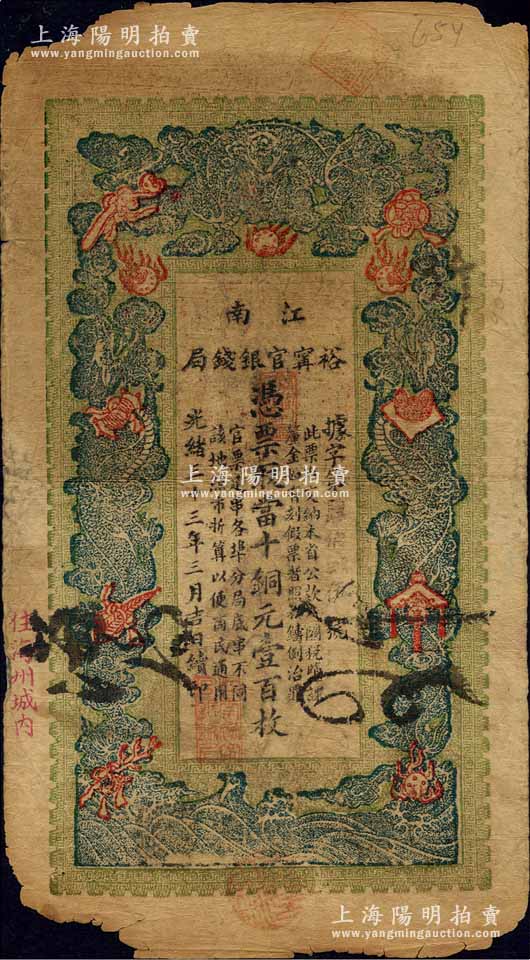 上海陽明拍賣
www.yangmingauction.com
654
江南
裕寧官銀錢局
據字第
號
憑票
當十銅元壹百枚
此票
納本省公款
釐金
刻假票者照私鑄例治罪
官票
串各埠分局底串不同
該地
市折算以便商民通用
光緒三
三年三月吉日續印
住海州城内
上海陽明拍賣
www.yangmingauction.com
上海陽明拍賣
www.yangmingauction.com